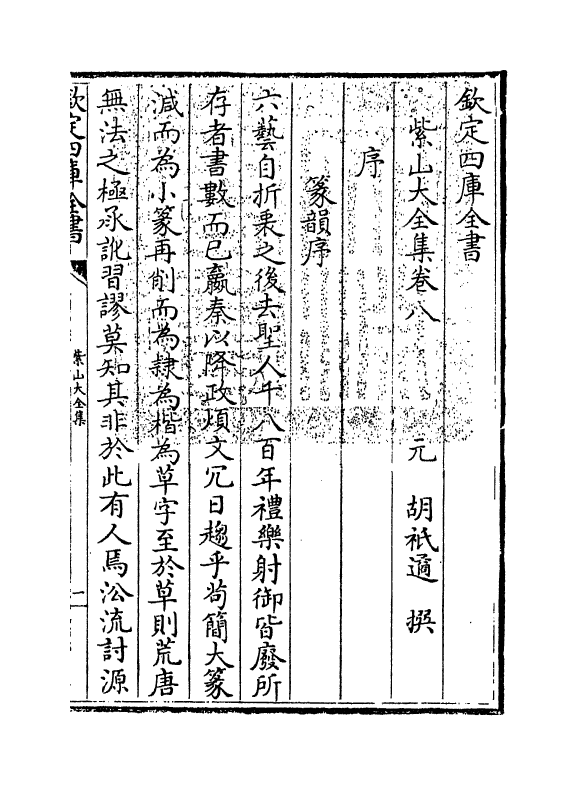 欽定四庫全書
紫山大全集卷八　元　胡祗遹　撰
序
篆韻序
六藝自折衷之後去聖人千八百年禮樂射御皆廢所
存者書數而已嬴秦以降政煩文冗日趨乎茍簡大篆
減而為小篆再削而為隸為楷為草字至於草則荒唐
無法之極承訛習謬莫知其非於此有人焉㳂流討源
欽定四庫全書
紫山大全集
一